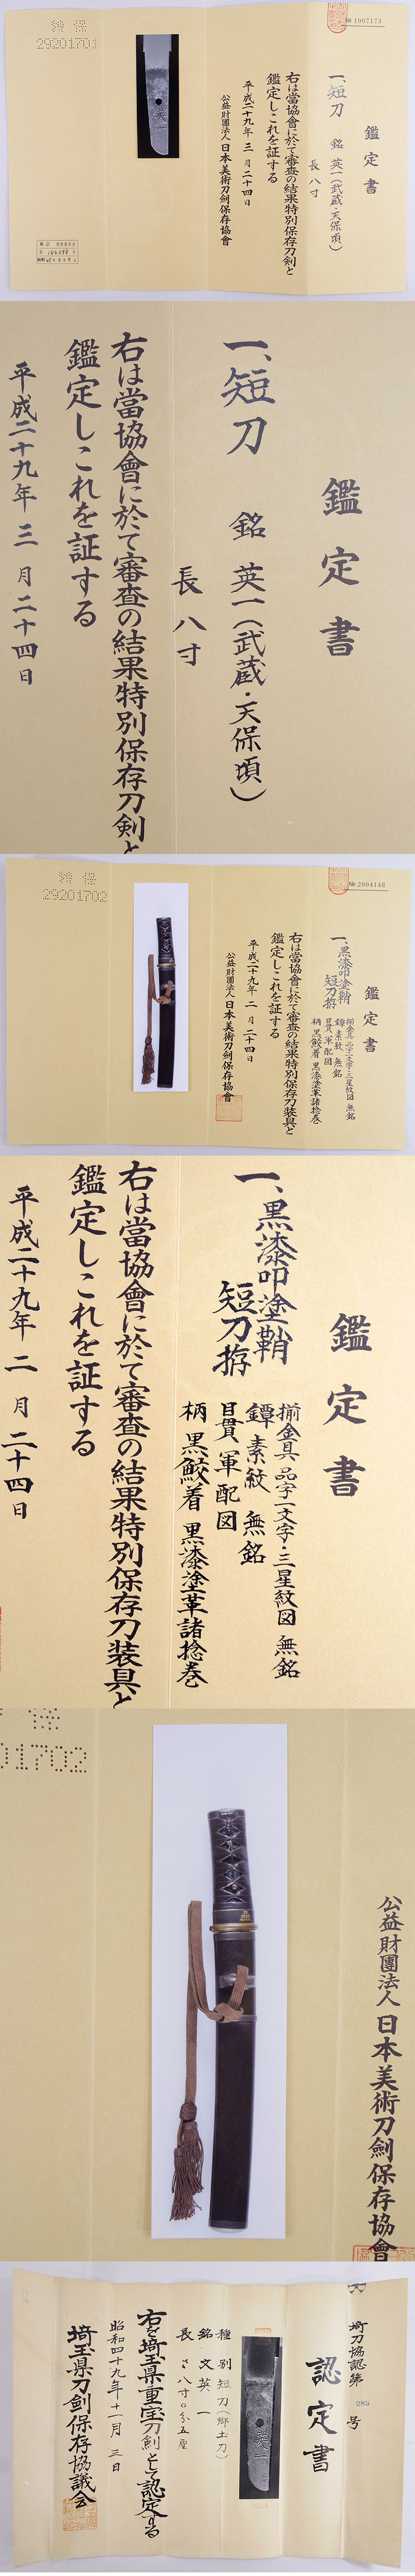 № 1007173
鑑定書
一、短刀 銘 英一(武蔵・天保頃)
長 八寸
右は當協會に於て審査の結果特別保存刀剣と
鑑定しこれを証する
平成二十九年 三 月 二十四 日
公益財團法人 日本美術刀劍保存協會
特 保
29201701
鑑定書
一、短刀 銘 英一(武蔵・天保頃)
長 八寸
右は當協會に於て審査の結果特別保存刀剣と
鑑定しこれを証する
平成二十九年 三 月 二十四 日
№ 2004148
鑑定書
一、黒漆叩塗鞘
短刀拵
揃金具 品字一文字・三星紋図 無銘
鐔 素紋 無銘
目貫 軍配図
柄 黒鮫着 黒漆塗革諸捻巻
右は當協會に於て審査の結果特別保存刀装具と
鑑定しこれを証する
平成二十九年 二 月 二十四 日
公益財團法人 日本美術刀劍保存協會
特 保
29201702
鑑定書
一、黒漆叩塗鞘
短刀拵
揃金具 品字一文字・三星紋図 無銘
鐔 素紋 無銘
目貫 軍配図
柄 黒鮫着 黒漆塗革諸捻巻
右は當協會に於て審査の結果特別保存刀装具と
鑑定しこれを証する
平成二十九年 二 月 二十四 日
保
01702
公益財團法人 日本美術刀劍保存協會
埼刀協認第 285 号
認定書
種 別 短刀(郷土刀)
銘 文 英 一
長 さ 八寸〇分五厘
右を埼玉県重宝刀剣として認定する
昭和四十九年十一月 三 日
埼玉県刀剣保存協議会